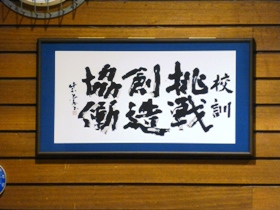 校訓
挑戦
創造
協働